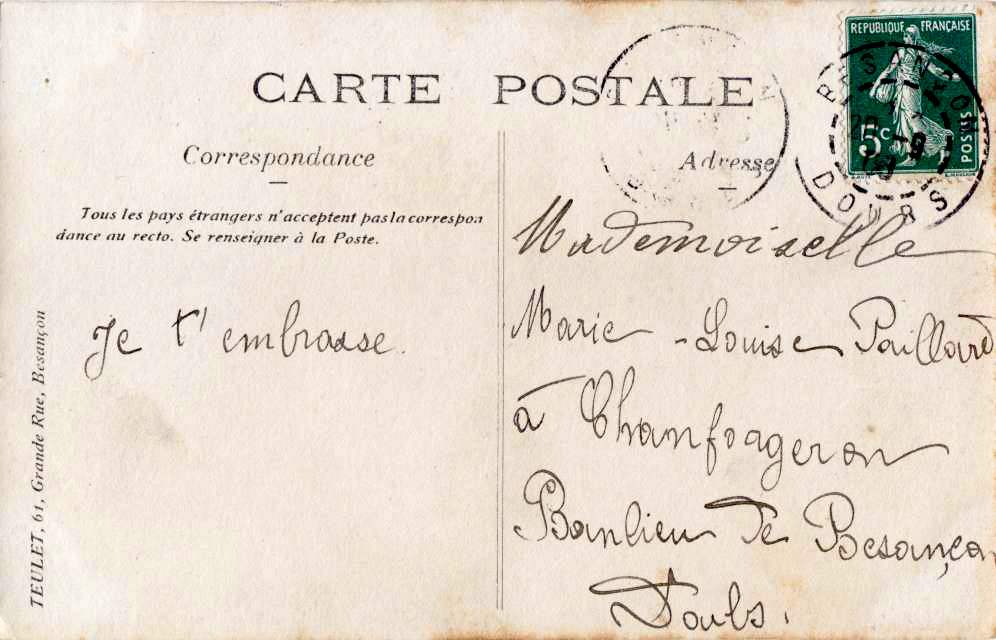 CARTE POSTALE
RÉPUBLIQUE FRANÇAISE
5c
POSTES
BESANÇON
DOUBS
Correspondance
Adresse
Tous les pays étrangers n'acceptent pas la correspon
dance au recto. Se renseigner à la Poste.
Je t'embrasse.
Mademoiselle
Marie-Louise Paillard
à Chamforgeron
Banlieu de Besançon
Doubs.
TEULET, 61, Grande Rue, Besançon